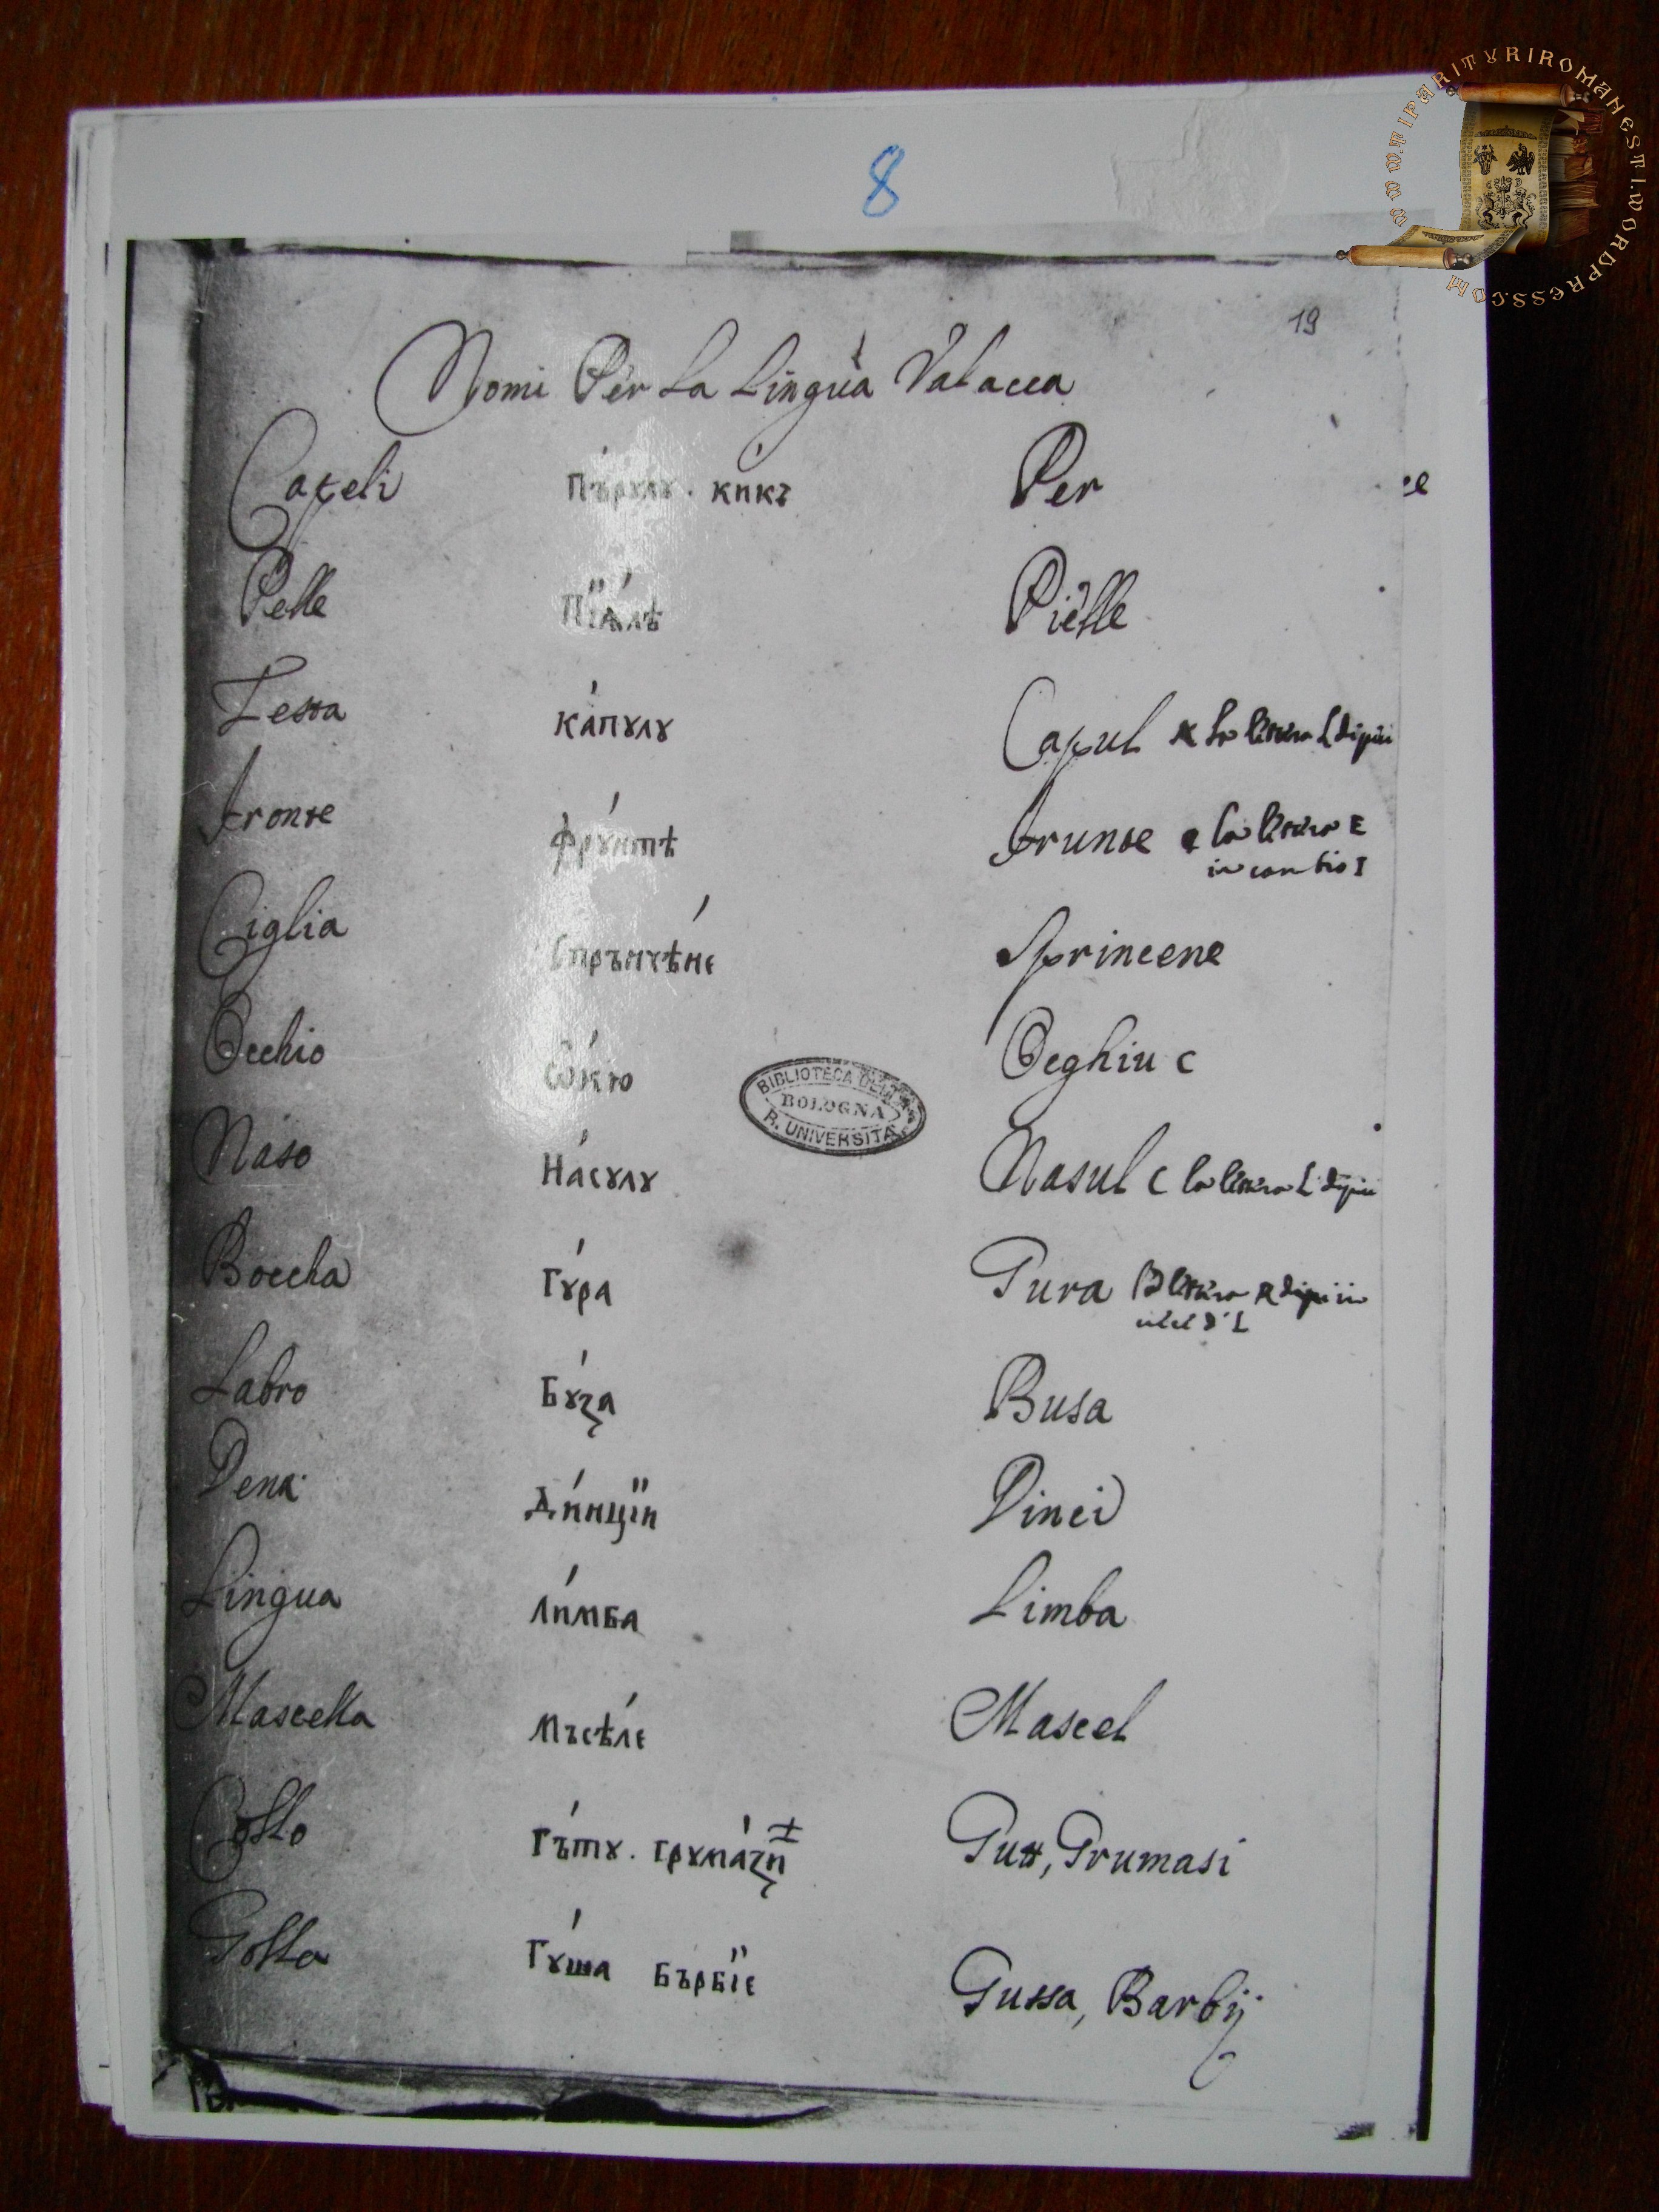 WWW.TIPARITURIROMANESTI.WORDPRESS.COM
8
19
Nomi Per La Lingua Valacca
Capeli Пърулу. кикъ Per
Pelle Пїѧлѣ Pielle
Testa кáпꙋлꙋ Capul
Fronte фрꙋ́нтѣ Frunte la littera E
in cambio I
Ciglia Спрънчѣне Sprincene
Occhio Ѡ́кю Oeghiu c
Naso На́сꙋлꙋ Nasul c la littera L
Boccha Гꙋ́ра Gura
Labro Бꙋ́за Busa
Denti Ди́нцїи Dinci
Lingua ли́мба Limba
Mascella мъсѣ́ле Mascel
Collo Гъ́тꙋ. грꙋма́зи Gutt, Grumasi
Golla Гꙋ́ша Бърбїе Gussa, Barbij
BIBLIOTECA DELLA
BOLOGNA
R. UNIVERSITA